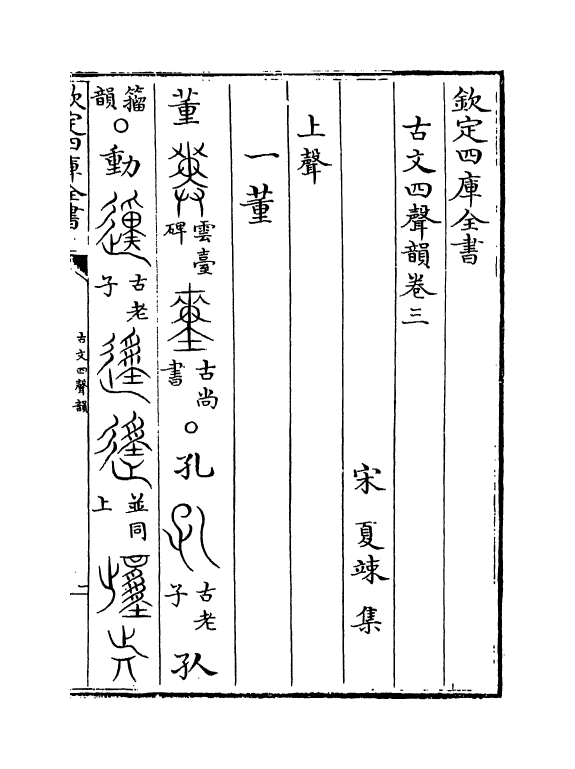 欽定四庫全書
古文四聲韻卷三
宋 夏竦 集
上聲
一董
董 雲臺碑 古尚書 ○孔 古老子
籀韻 ○動 古老子 並同上
欽定四庫全書
古文四聲韻
一